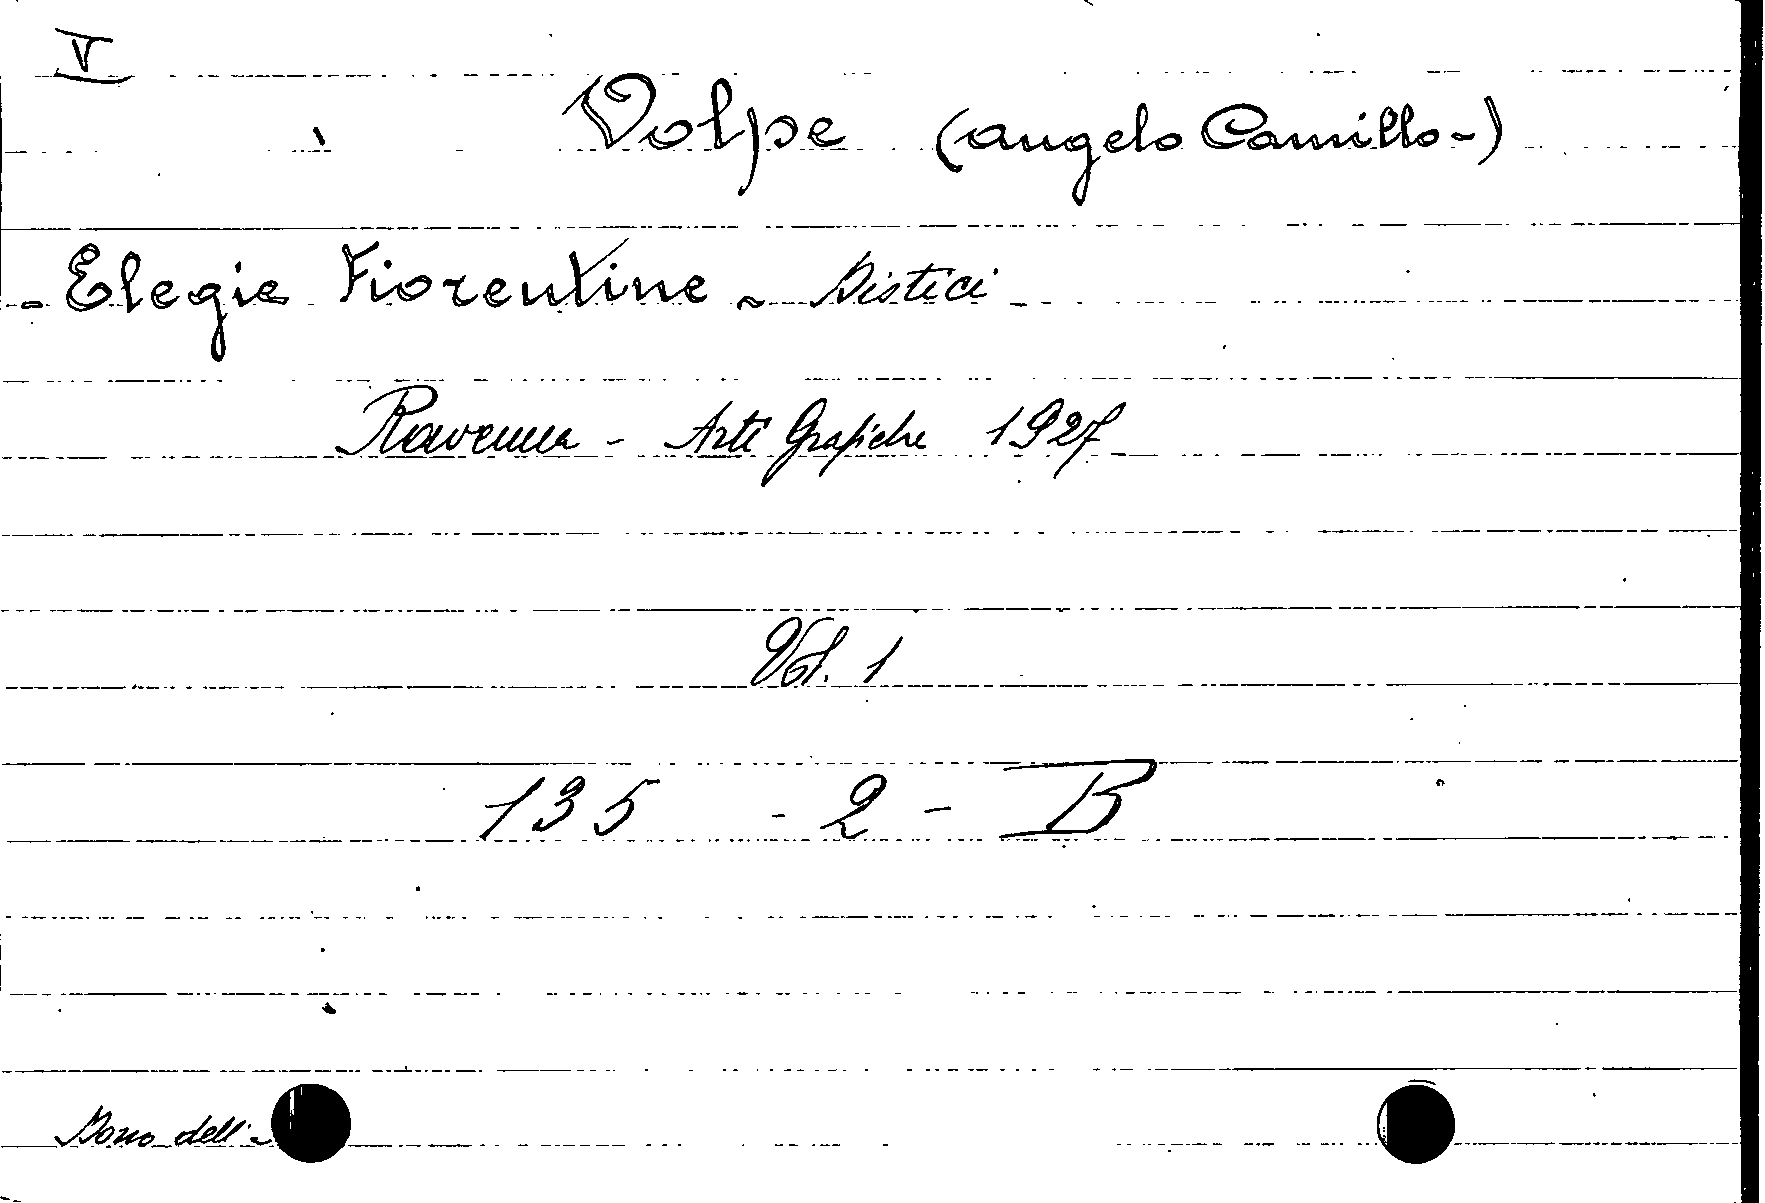 V
Volpe (Angelo Camillo-)
- Elegie Fiorentine - Distici -
Ravenna - Arti Grafiche 1927
Vol. 1
135 - 2 - B
Dono dell'